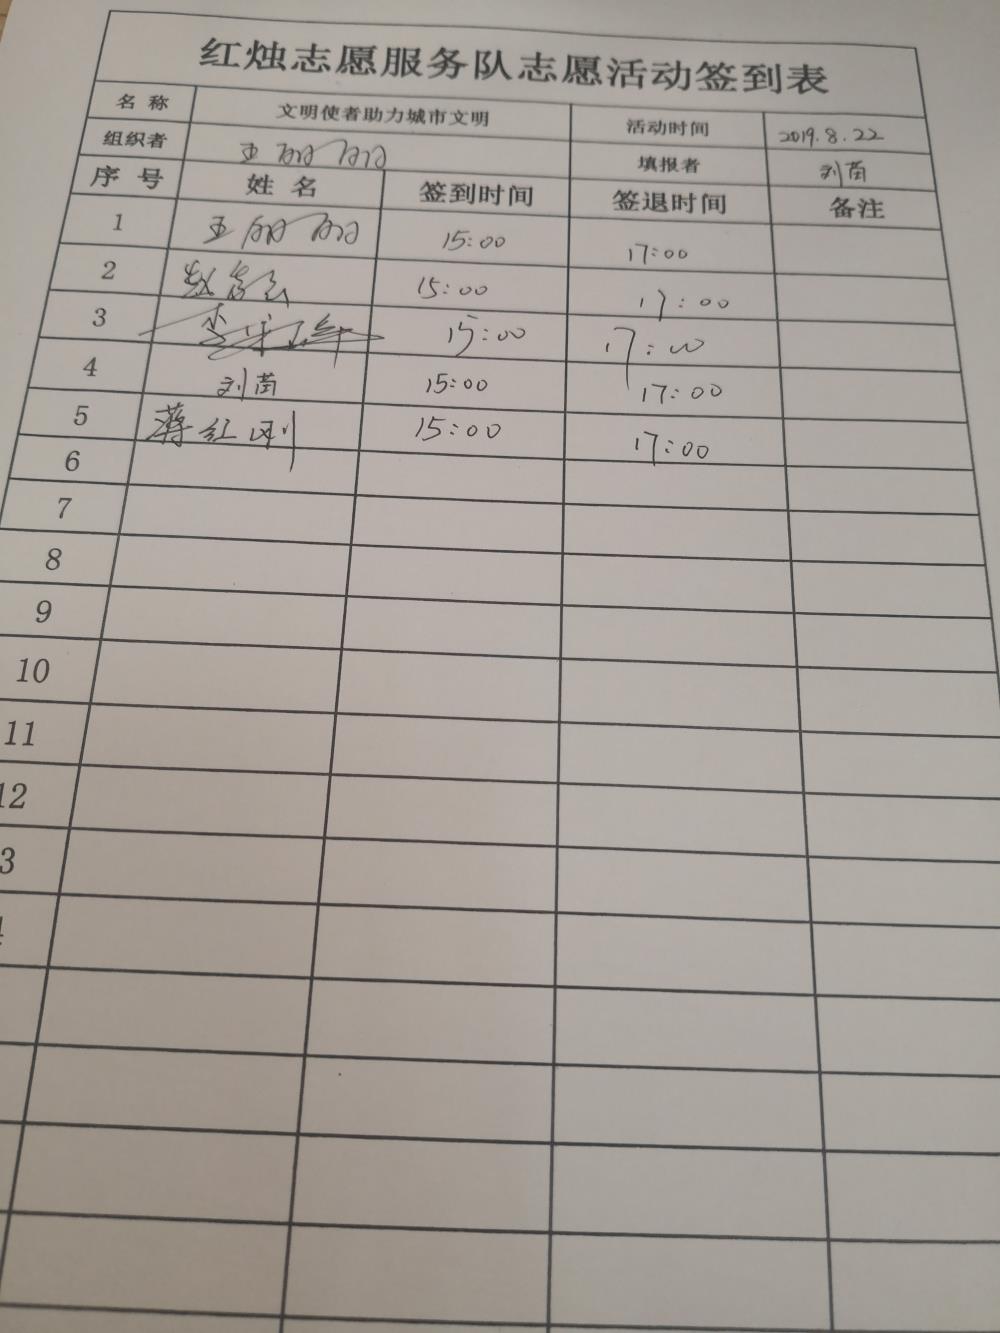 红烛志愿服务队志愿活动签到表
名 称 文明使者助力城市文明 活动时间 2019.8.22
组织者 王丽丽 填报者 刘茵
序 号 姓 名 签到时间 签退时间 备注
1 王丽丽 15:00 17:00
2 15:00 17:00
3 15:00 17:00
4 刘茵 15:00 17:00
5 蒋红刚 15:00 17:00
6
7
8
9
10
11
12
3